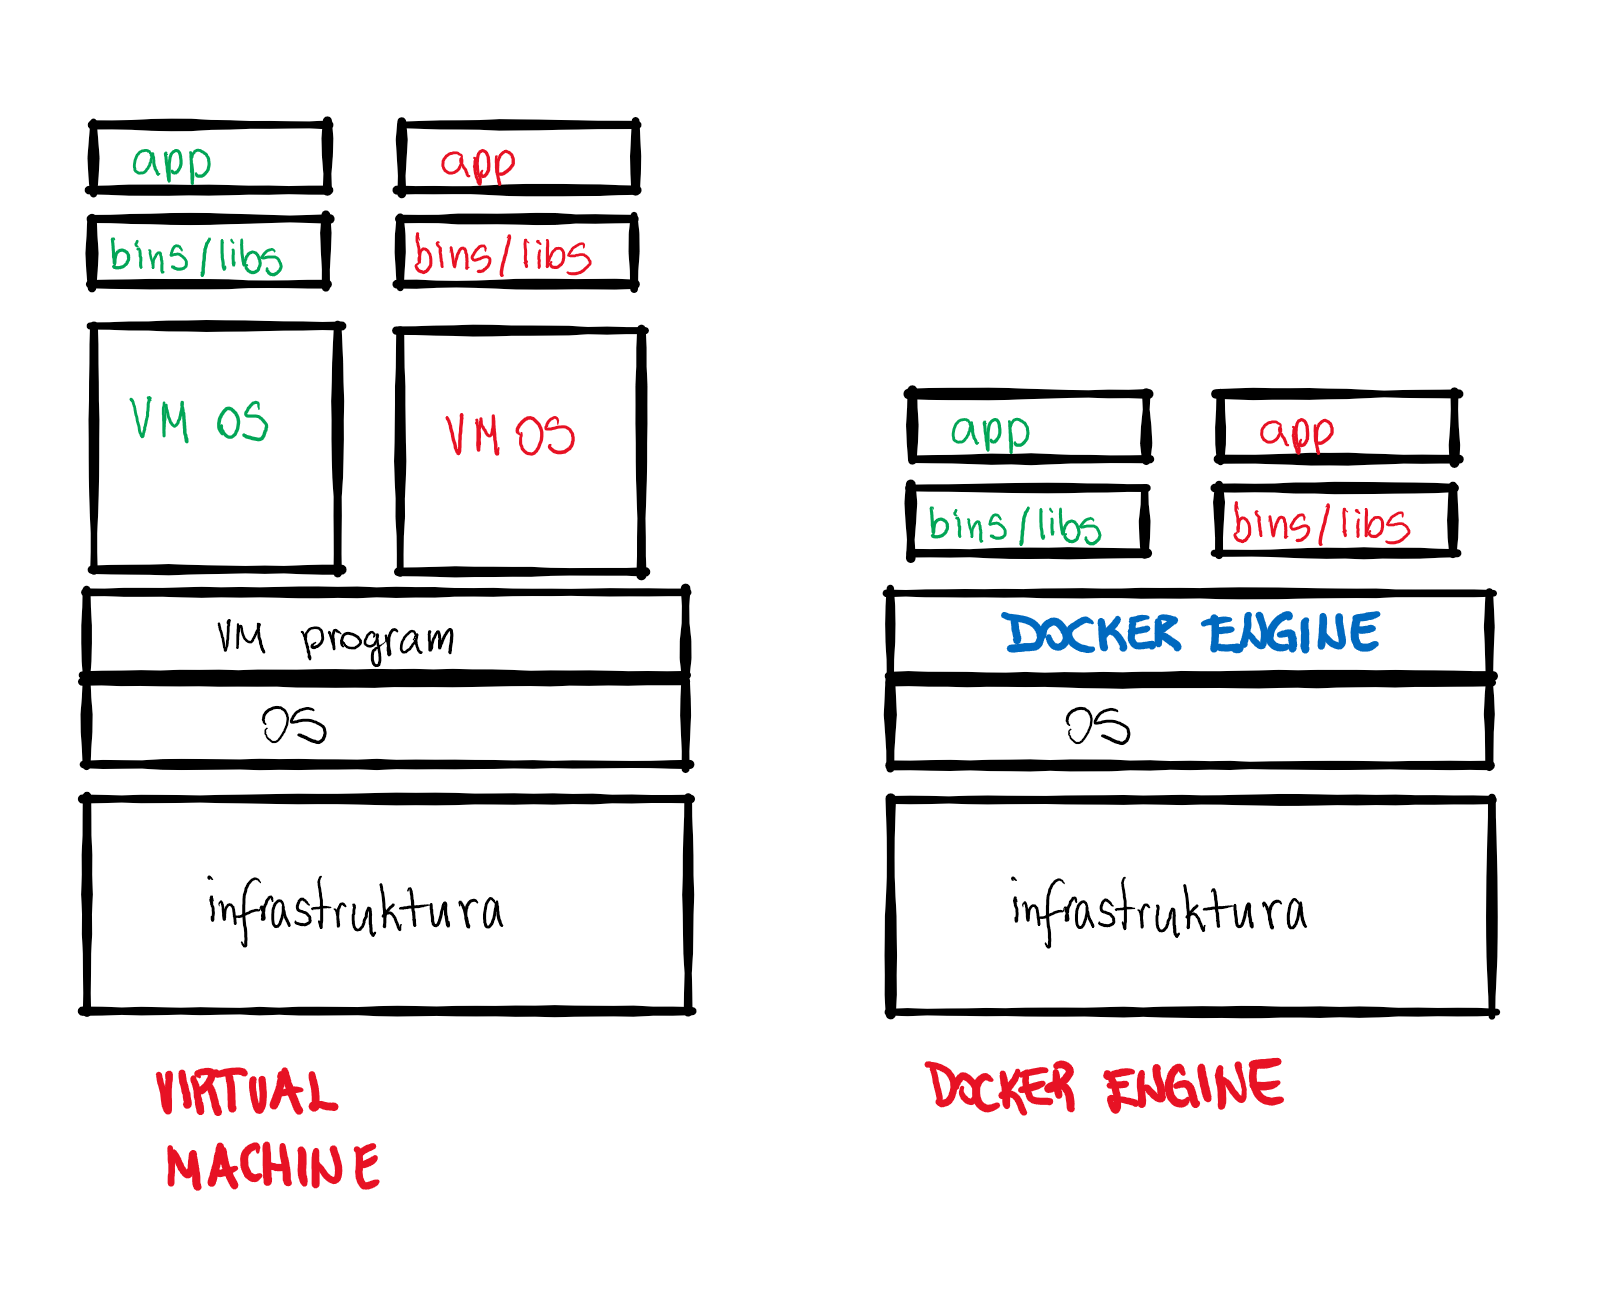 app
bins/libs
VM OS
app
bins/libs
VM OS
VM program
OS
infrastruktura
VIRTUAL
MACHINE
app
bins/libs
app
bins/libs
DOCKER ENGINE
OS
infrastruktura
DOCKER ENGINE